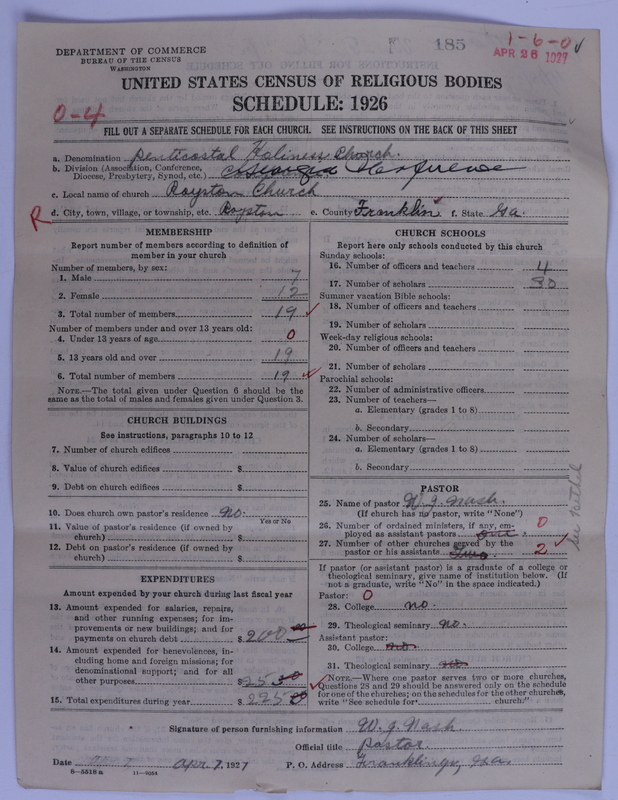 185
1-6-0 ✓
APR 26 1927
DEPARTMENT OF COMMERCE
BUREAU OF THE CENSUS
WASHINGTON
UNITED STATES CENSUS OF RELIGIOUS BODIES
SCHEDULE: 1926
0-4
FILL OUT A SEPARATE SCHEDULE FOR EACH CHURCH. SEE INSTRUCTIONS ON THE BACK OF THIS SHEET
a. Denomination Pentecostal Holiness Church.
b. Division (Association, Conference, Diocese, Presbytery, Synod, etc.) Georgia Conference
c. Local name of church Royston Church
R d. City, town, village, or township, etc. Royston e. County Franklin f. State Ga.
MEMBERSHIP
Report number of members according to definition of
member in your church
Number of members, by sex:
1. Male 7
2. Female 12
3. Total number of members 19 ✓
Number of members under and over 13 years old:
4. Under 13 years of age 0
5. 13 years old and over 19
6. Total number of members 19 ✓
NOTE.—The total given under Question 6 should be
same as the total of males and females given under Question 3.
CHURCH BUILDINGS
See instructions, paragraphs 10 to 12
7. Number of church edifices
8. Value of church edifices $
9. Debt on church edifices $
10. Does church own pastor's residence No.
Yes or No
11. Value of pastor's residence (if owned by
church) $
12. Debt on pastor's residence (if owned by
church) $
EXPENDITURES
Amount expended by your church during last fiscal year
13. Amount expended for salaries, repairs,
and other running expenses; for im-
provements or new buildings; and for
payments on church debt $ 200 00
14. Amount expended for benevolences, in-
cluding home and foreign missions; for
denominational support; and for all
other purposes $ 25 00
15. Total expenditures during year $ 225 0 ✓
CHURCH SCHOOLS
Report here only schools conducted by this church
Sunday schools:
16. Number of officers and teachers 4
17. Number of scholars 30
Summer vacation Bible schools:
18. Number of officers and teachers
19. Number of scholars
Week-day religious schools:
20. Number of officers and teachers
21. Number of scholars
Parochial schools:
22. Number of administrative officers
23. Number of teachers—
a. Elementary (grades 1 to 8)
b. Secondary
24. Number of scholars—
a. Elementary (grades 1 to 8)
b. Secondary
PASTOR
25. Name of pastor W. J. Nash.
(If church has no pastor, write "None")
26. Number of ordained ministers, if any, em-
ployed as assistant pastors one. 0
27. Number of other churches served by the
pastor or his assistants Two 2 ✓
If pastor (or assistant pastor) is a graduate of a college or
theological seminary, give name of institution below. (If
not a graduate, write "No" in the space indicated.)
Pastor: 0
28. College no.
29. Theological seminary No.
Assistant pastor:
30. College no
31. Theological seminary no
NOTE.—Where one pastor serves two or more churches,
Question 28 and 29 should be answered only on the schedule
for one of the churches; on the schedules for the other churches,
write "See schedule for church."
See
Signature of person furnishing information W. J. Nash
Official title Pastor
Date Apr. 7, 1927 P. O. Address Franklin Springs, Ga.
8—5518 a 11—9084